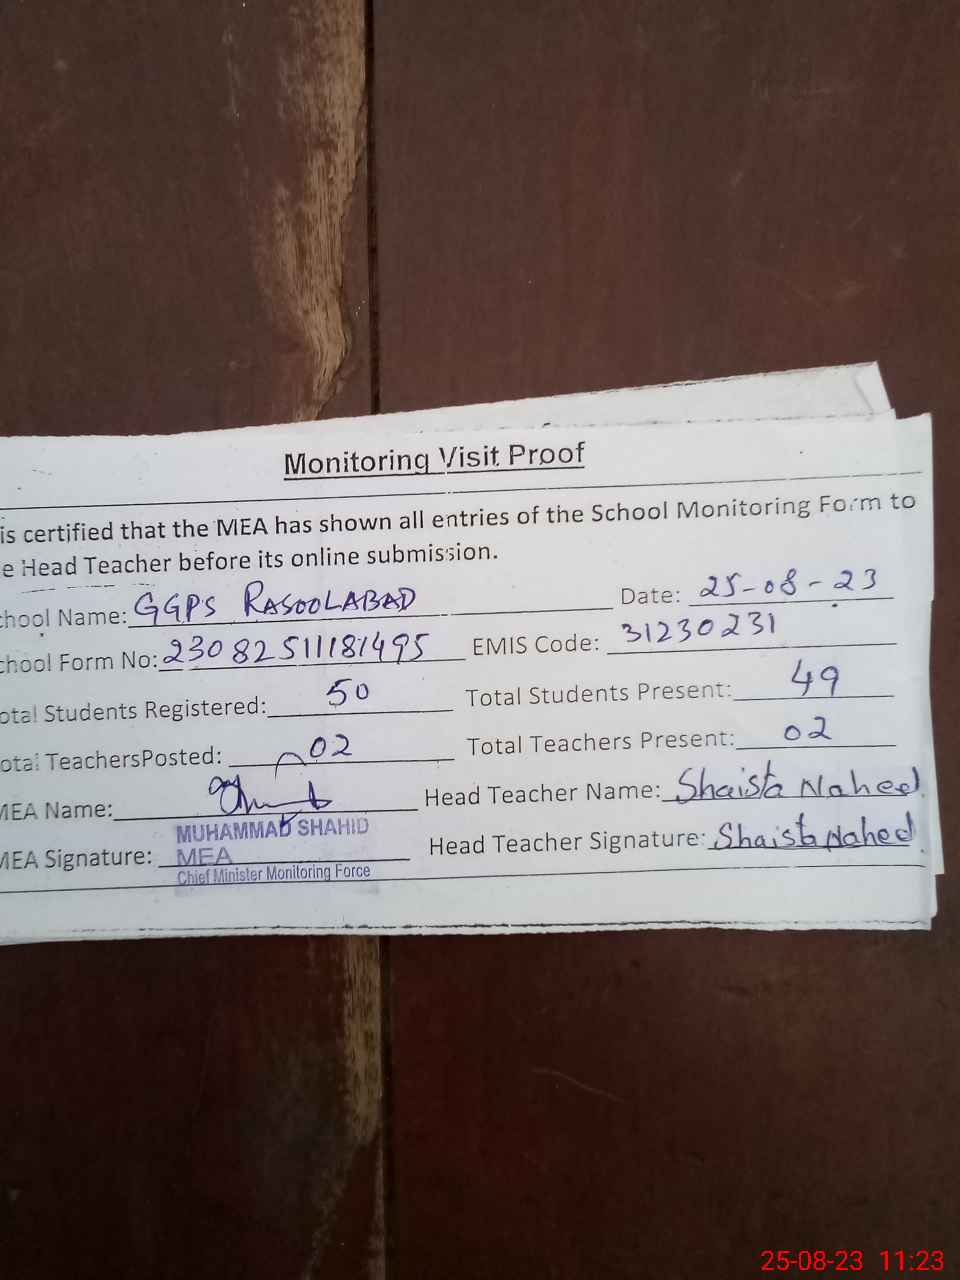 Monitoring Visit Proof
is certified that the MEA has shown all entries of the School Monitoring Form to
e Head Teacher before its online submission.
chool Name: GGPS RASOOLABAD Date: 25-08-23
chool Form No: 23082511181495 EMIS Code: 31230231
otal Students Registered: 50 Total Students Present: 49
otal TeachersPosted: 02 Total Teachers Present: 02
MEA Name: Head Teacher Name: Shaista Naheed
MUHAMMAD SHAHID
MEA Signature: MEA Head Teacher Signature: Shaista Naheed
Chief Minister Monitoring Force
25-08-23 11:23